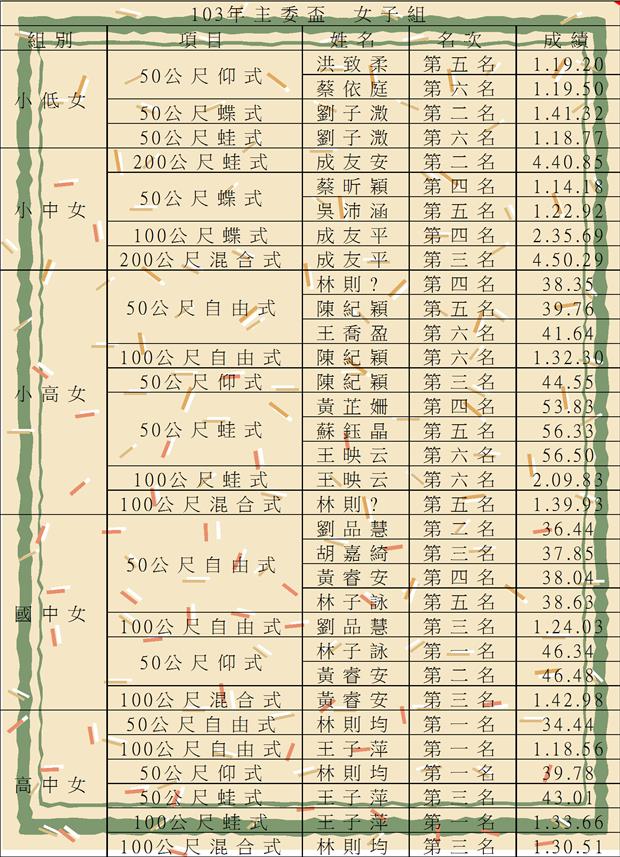 103年主委盃 女子組
組別 項目 姓名 名次 成績
小低女 50公尺仰式 洪致柔 第五名 1.19.20
蔡依庭 第六名 1.19.50
50公尺蝶式 劉子溦 第二名 1.41.32
50公尺蛙式 劉子溦 第六名 1.18.77
小中女 200公尺蛙式 成友安 第二名 4.40.85
50公尺蝶式 蔡昕穎 第四名 1.14.18
吳沛涵 第五名 1.22.92
100公尺蝶式 成友平 第四名 2.35.69
200公尺混合式 成友平 第三名 4.50.29
小高女 50公尺自由式 林則? 第四名 38.35
陳紀穎 第五名 39.76
王喬盈 第六名 41.64
100公尺自由式 陳紀穎 第六名 1.32.30
50公尺仰式 陳紀穎 第三名 44.55
50公尺蛙式 黃芷姍 第四名 53.83
蘇鈺晶 第五名 56.33
王映云 第六名 56.50
100公尺蛙式 王映云 第六名 2.09.83
100公尺混合式 林則? 第五名 1.39.93
國中女 50公尺自由式 劉品慧 第二名 36.44
胡嘉綺 第三名 37.85
黃睿安 第四名 38.04
林子詠 第五名 38.63
100公尺自由式 劉品慧 第三名 1.24.03
50公尺仰式 林子詠 第一名 46.34
黃睿安 第二名 46.48
100公尺混合式 黃睿安 第三名 1.42.98
高中女 50公尺自由式 林則均 第一名 34.44
100公尺自由式 王子萍 第一名 1.18.56
50公尺仰式 林則均 第一名 39.78
50公尺蛙式 王子萍 第三名 43.01
100公尺蛙式 王子萍 第一名 1.33.66
100公尺混合式 林則均 第三名 1.30.51